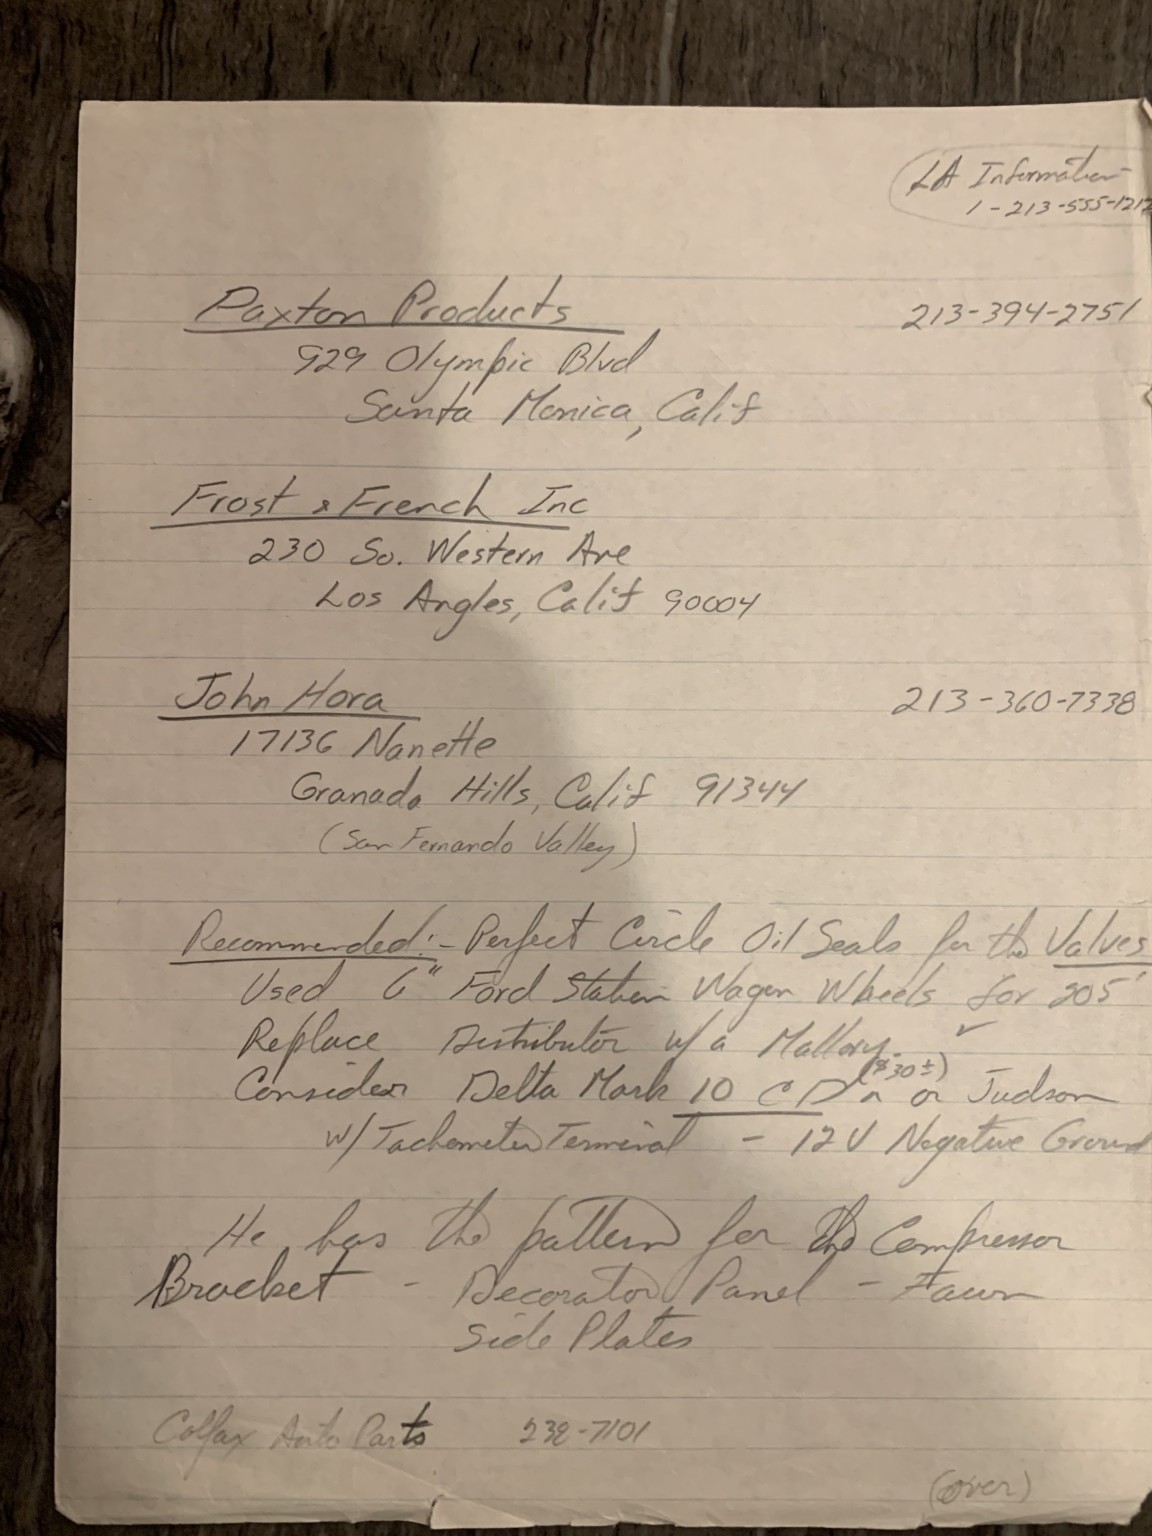 LA Information
1-213-555-1212
Paxton Products 213-394-2751
929 Olympic Blvd
Santa Monica, Calif
Frost & French Inc
230 So. Western Ave
Los Angles, Calif 90004
John Hora 213-360-7338
17136 Nanette
Granada Hills, Calif 91344
(San Fernando Valley)
Recommended:- Perfect Circle Oil Seals for the Valves
Used 6" Ford Station Wagon Wheels for 205'
Replace Distributor w/a Mallory. ✓
($30±)
Consider Delta Mark 10 CD or Judson
w/Tachometer Terminal - 12V Negative Ground
He has the pattern for the Compressor
Bracket - Decorator Panel - Fawn
Side Plates
Colfax Auto Parts 232-7101
(over)